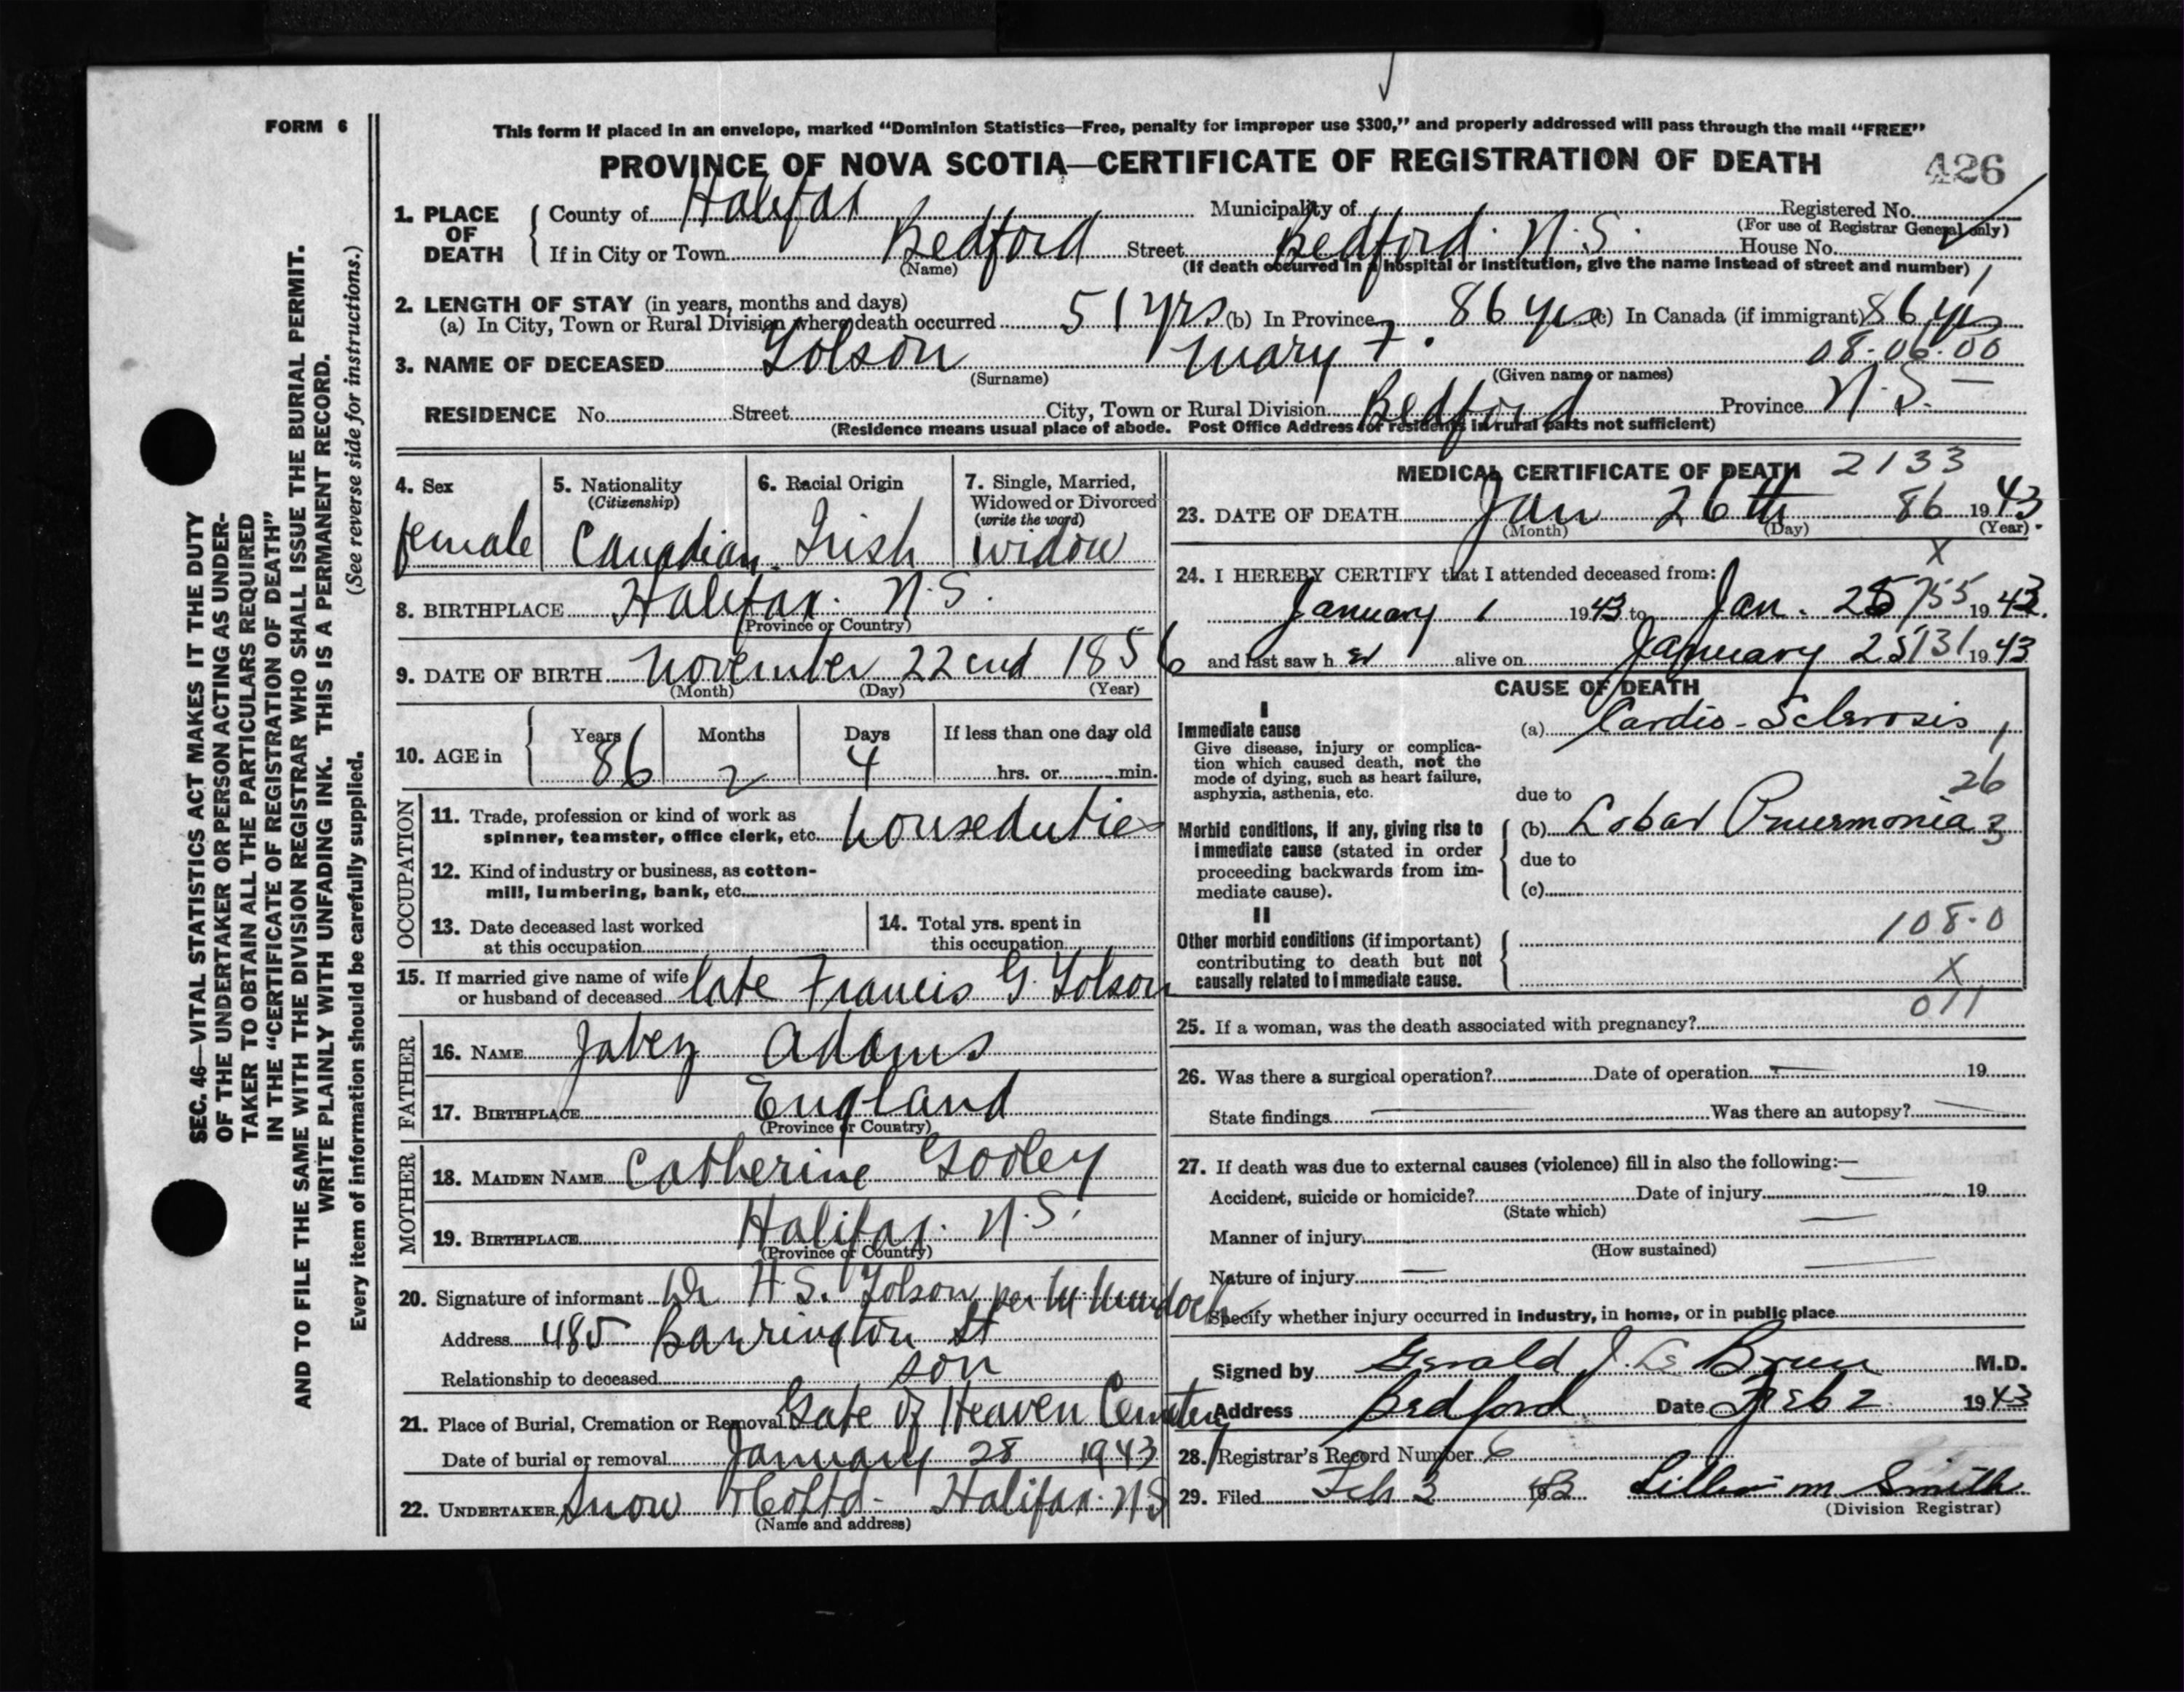 FORM 6
This form if placed in an envelope, marked “Dominion Statistics—Free, penalty for improper use $300,” and properly addressed will pass through the mail “FREE”
PROVINCE OF NOVA SCOTIA—CERTIFICATE OF REGISTRATION OF DEATH 426
1. PLACE OF DEATH County of Halifax Municipality of Registered No.
(For use of Registrar General only)
If in City or Town Bedford Street Bedford. N.S. House No.
(Name) (If death occurred in a hospital or institution, give the name instead of street and number)
2. LENGTH OF STAY (in years, months and days)
(a) In City, Town or Rural Division where death occurred 51 yrs (b) In Province 86 yrs (c) In Canada (if immigrant) 86 yrs
3. NAME OF DECEASED Tolson Mary F. 08-06-00
(Surname) (Given name or names)
RESIDENCE No. Street City, Town or Rural Division Bedford Province N.S.
(Residence means usual place of abode. Post Office Address for residents in rural parts not sufficient)
4. Sex female
5. Nationality (Citizenship) Canadian
6. Racial Origin Irish
7. Single, Married, Widowed or Divorced (write the word) widow
8. BIRTHPLACE Halifax. N.S.
(Province or Country)
9. DATE OF BIRTH November 22end 1856
(Month) (Day) (Year)
10. AGE in Years 86 Months 2 Days 4 If less than one day old
hrs. or min.
OCCUPATION
11. Trade, profession or kind of work as
spinner, teamster, office clerk, etc. houseduties
12. Kind of industry or business, as cotton-
mill, lumbering, bank, etc.
13. Date deceased last worked
at this occupation
14. Total yrs. spent in
this occupation
15. If married give name of wife
or husband of deceased late Francis G. Tolson
FATHER
16. NAME Jabez Adams
17. BIRTHPLACE England
(Province or Country)
MOTHER
18. MAIDEN NAME Catherine Gooley
19. BIRTHPLACE Halifax. N.S.
(Province or Country)
20. Signature of informant Dr H.S. Tolson per M Murdoch
Address 485 Barrington St
Relationship to deceased son
21. Place of Burial, Cremation or Removal Gate of Heaven Cemetery
Date of burial or removal January 28 1943
22. UNDERTAKER Snow & Co Ltd - Halifax. NS
(Name and address)
MEDICAL CERTIFICATE OF DEATH 2133
23. DATE OF DEATH Jan 26th 86 1943.
(Month) (Day) (Year)
X
24. I HEREBY CERTIFY that I attended deceased from:
January 1 1943 to Jan. 25 755 1943.
and last saw h er alive on January 25 131 1943
CAUSE OF DEATH
I
Immediate cause (a) Cardio-Sclerosis 1
Give disease, injury or complica-
tion which caused death, not the
mode of dying, such as heart failure,
asphyxia, asthenia, etc.
26
due to
Morbid conditions, if any, giving rise to (b) Lobar Pnuermonia 3
immediate cause (stated in order due to
proceeding backwards from im-
mediate cause). (c)
II
108-0
Other morbid conditions (if important)
contributing to death but not
causally related to immediate cause. X
011
25. If a woman, was the death associated with pregnancy?
26. Was there a surgical operation? Date of operation — 19
State findings — Was there an autopsy? —
27. If death was due to external causes (violence) fill in also the following:—
Accident, suicide or homicide? Date of injury — 19
(State which)
Manner of injury —
(How sustained)
Nature of injury — —
Specify whether injury occurred in industry, in home, or in public place
Signed by Gerald J. Le Brun M.D.
Address Bedford Date Feb 2 1943
28. Registrar's Record Number 6
29. Filed Feb 3 43 Lillian M Smith
(Division Registrar)
SEC. 46—VITAL STATISTICS ACT MAKES IT THE DUTY
OF THE UNDERTAKER OR PERSON ACTING AS UNDER-
TAKER TO OBTAIN ALL THE PARTICULARS REQUIRED
IN THE “CERTIFICATE OF REGISTRATION OF DEATH”
AND TO FILE THE SAME WITH THE DIVISION REGISTRAR WHO SHALL ISSUE THE BURIAL PERMIT.
WRITE PLAINLY WITH UNFADING INK. THIS IS A PERMANENT RECORD.
Every item of information should be carefully supplied. (See reverse side for instructions.)